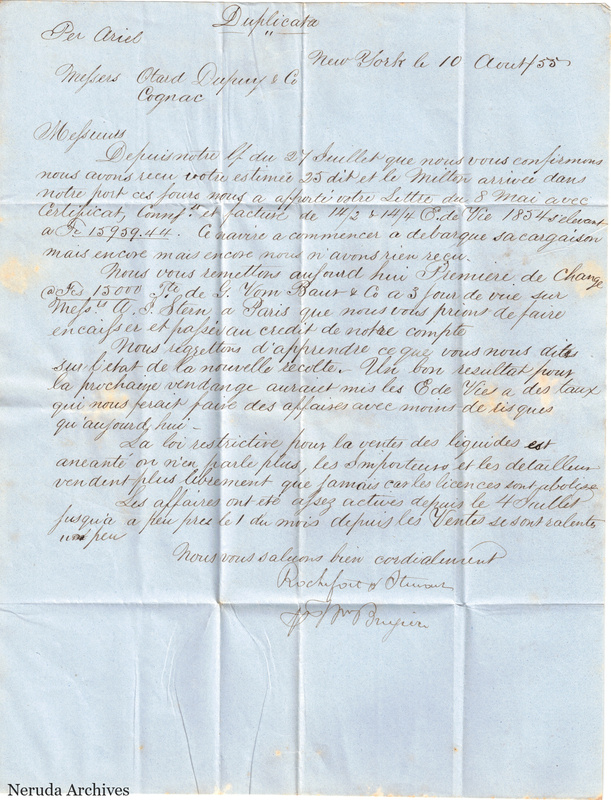 Duplicata
Per Ariel
New York le 10 Aout/55
Messers Otard Dupuy & Co
Cognac
Messieurs
Depuis notre lf du 27 Juillet que nous vous confirmons
nous avons recu votre estimée 25 dit et le Milton arrivée dans
notre port ces jours nous a apporté votre Lettre du 8 Mai avec
Certificat, Connft. et facture de 14/2 & 14/4 E. de Vie 1854 s'elevant
a Fc 15959.44. Ce navire a commencer a debarque sa cargaison
mais encore mais encore nous n'avons rien reçu.
Nous vous remettons aujourd hui Premiere de Change
Fcs 15000 Tte de G. Vom Baur & Co a 3 jour de vue sur
Messrs A. J. Stern, a Paris que nous vous prions de faire
encaisser et passer au credit de notre compte
Nous regrettons d'apprendre ce que vous nous dites
sur l'etat de la nouvelle recolte. Un bon resultat pour
la prochaine vendange auraiet mis les E de Vies a des taux
qui nous ferait faire des affaires avec moins de risques
qu'aujourd, hui –
La loi restrictive pour la ventes des liquides est
aneanté on n'en parle plus, les Importeurs et les detailleur
vendent plus librement que jamais car les licences sont abolise
Les affaires ont été assez actives depuis le 4 Juillet
jusqu'a a peu pres le 1 du mois depuis les Ventes se sont ralentie
un peu
Nous vous saluons bien cordialement
Rochefort & Stewart
Neruda Archives